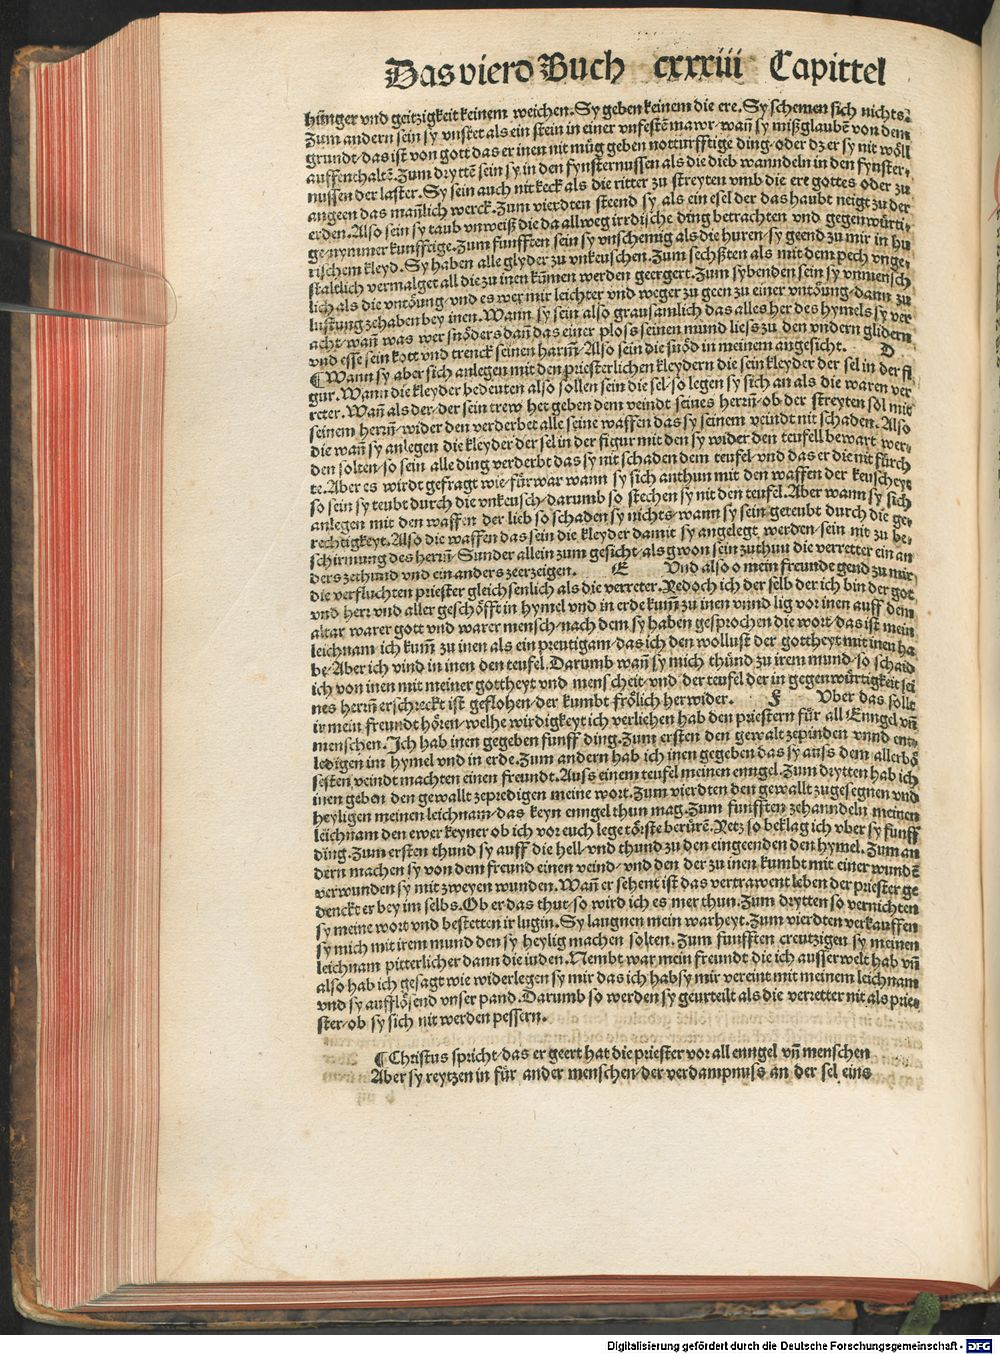 Das vierd Buch cxxxiii Capittel
hũnger vnd geitzigkeit keinem weichen. Sy geben keinem die ere. Sy schemen sich nichts.
Zum andern sein sy vnsket als ein stein in einer vnfestẽ mawr/wañ sy mißglaubẽ von dem
grundt/das ist von gott das er inen nit müg geben notturfftige ding/oder dz er sy nit wöll
auffenthaltẽ. Zum dryttẽ sein sy in den fynsternussen als die dieb wanndeln in den fynster/
nussen der laster. Sy sein auch nit keck als die ritter zu streyten vmb die ere gottes oder zu
angeen das mañlich werck. Zum vierdten steend sy als ein esel der das haubt neigt zu der
erden. Also sein sy taub vnweiß die da allweg irrdische ding betrachten vnd gegenwürti/
ge nymmer kunfftige. Zum funfften sein sy vnschemig als die huren/sy geend zu mir in hu
rischem kleyd. Sy haben alle glyder zu vnkeuschen. Zum sechßten als mit dem pech vnge/
staltlich vermalget all die zu inen kũmen werden geergert. Zum sybenden sein sy vnmensch
lich als die vntöung/vnd es wer mir leichter vnd weger zu geen zu einer vntöung/dann zu
lustung zehaben bey inen. Wann sy sein also grausamlich das alles her des hymels sy ver
acht/wañ was wer snöders dañ das einer ploss seinen mund liess zu den vndern glidern
vnd esse sein kott vnd trenck seinen harm̃/Also sein die snöd in meinem angesicht. D
¶ Wann sy aber sich anlegen mit den priesterlichen kleydern die sein kleyder der sel in der fi
gur. Wann die kleyder bedeuten also sollen sein die sel/so legen sy sich an als die waren ver
reter. Wañ als der/der sein trew het geben dem veindt seines herrñ/ob der streyten sol mit
seinem herrñ/wider den verderbet alle seine waffen das sy seinem veindt nit schaden. Also
die wañ sy anlegen die kleyder der sel in der figur mit den sy wider den teufell bewart wer/
den solten/so sein alle ding verderbt das sy nit schaden dem teufel/vnd das er die nit fürch
te. Aber es wirdt gefragt wie/fürwar wann sy sich anthun mit den waffen der keuscheyt
so sein sy teubt durch die vnkeusch/darumb so stechen sy nit den teufel. Aber wann sy sich
anlegen mit den waffen der lieb so schaden sy nichts/wann sy sein geteubt durch die ge/
rechtigkeyt. Also die waffen das sein die kleyder damit sy angelegt werden/sein nit zu be/
schirmung des herrñ/Sunder allein zum gesicht/als gwon sein zuthun die verretter ein an
ders zethund vnd ein anders zeerzeigen. E Vnd also o mein freunde gend zu mir
die verfluchten priester gleichsenlich als die verreter. Yedoch ich der selb der ich bin der got
vnd herr vnd aller geschöfft in hymel vnd in erde kum̃ zu inen vnnd lig vor inen auff dem
altar warer gott vnd warer mensch/nach dem sy haben gesprochen die wort/das ist mein
leichnam ich kum̃ zu inen als ein preutigam/das ich den wollust der gottheyt mit inen ha
be/Aber ich vind in inen den teufel. Darumb wañ sy mich thünd zu irem mund/so schaid
ich von inen mit meiner gottheyt vnd menscheit/vnd der teufel der in gegenwürtigkeit sei
nes herrñ erschreckt ist geflohen/der kumbt frölich her wider. F Vber das sollt
ir mein freundt hören/welhe wirdigkeyt ich verliehen hab den priestern für all Enngel vñ
menschen. Ich hab inen gegeben funff ding. Zum ersten den gewalt zepinden vnnd ent/
ledigen im hymel vnd in erde. Zum andern hab ich inen gegeben das sy auss dem allerbö
sesten veindt machten einen freundt. Auss einem teufel meinen enngel. Zum drytten hab ich
inen geben den gewallt zepredigen meine wort. Zum vierdten den gewallt zugesegnen vnd
heyligen meinen leichnam/das keyn enngel thun mag. Zum funfften zehanndeln meinen
leichnam den ewer keyner ob ich vor euch lege törste berürẽ. Yetz so beklag ich vber sy funff
ding. Zum ersten thund sy auff die hell/vnd thund zu den eingeenden den hymel. Zum an
dern machen sy von dem freund einen veind/vnd den der zu inen kumbt mit einer wundẽ
verwunden sy mit zweyen wunden. Wañ er sehent ist das vertrawent leben der priester ge
denckt er bey im selbs. Ob er das thut/so wird ich es mer thun. Zum drytten so vernichten
sy meine wort vnd bestetten ir lugin. Sy laugnen mein warheyt. Zum vierdten verkauffen
sy mich mit irem mund den sy heylig machen solten. Zum funfften creutzigen sy meinen
leichnam pitterlicher dann die iuden. Nembt war mein freundt die ich ausserwelt hab vñ
also hab ich gesagt wie widerlegen sy mir das ich hab sy mir vereint mit meinem leichnam
vnd sy aufflösend vnser pand. Darumb so werden sy geurteilt als die verretter nit als prie/
ster/ob sy sich nit werden pessern.
¶ Christus spricht/das er geert hat die priester vor all enngel vñ menschen
Aber sy reytzen in für ander menschen/der verdampnuss an der sel eins
Digitalisierung gefördert durch die Deutsche Forschungsgemeinschaft - DFG